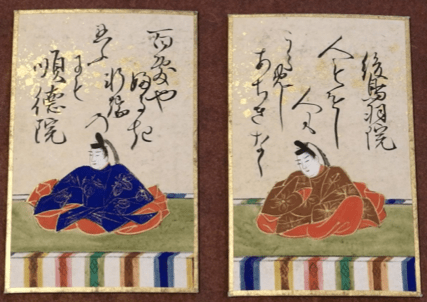 後鳥羽院
人もをし
人も
うらめし
あちきなく
百敷や
ふるき
軒端の
にも
順徳院